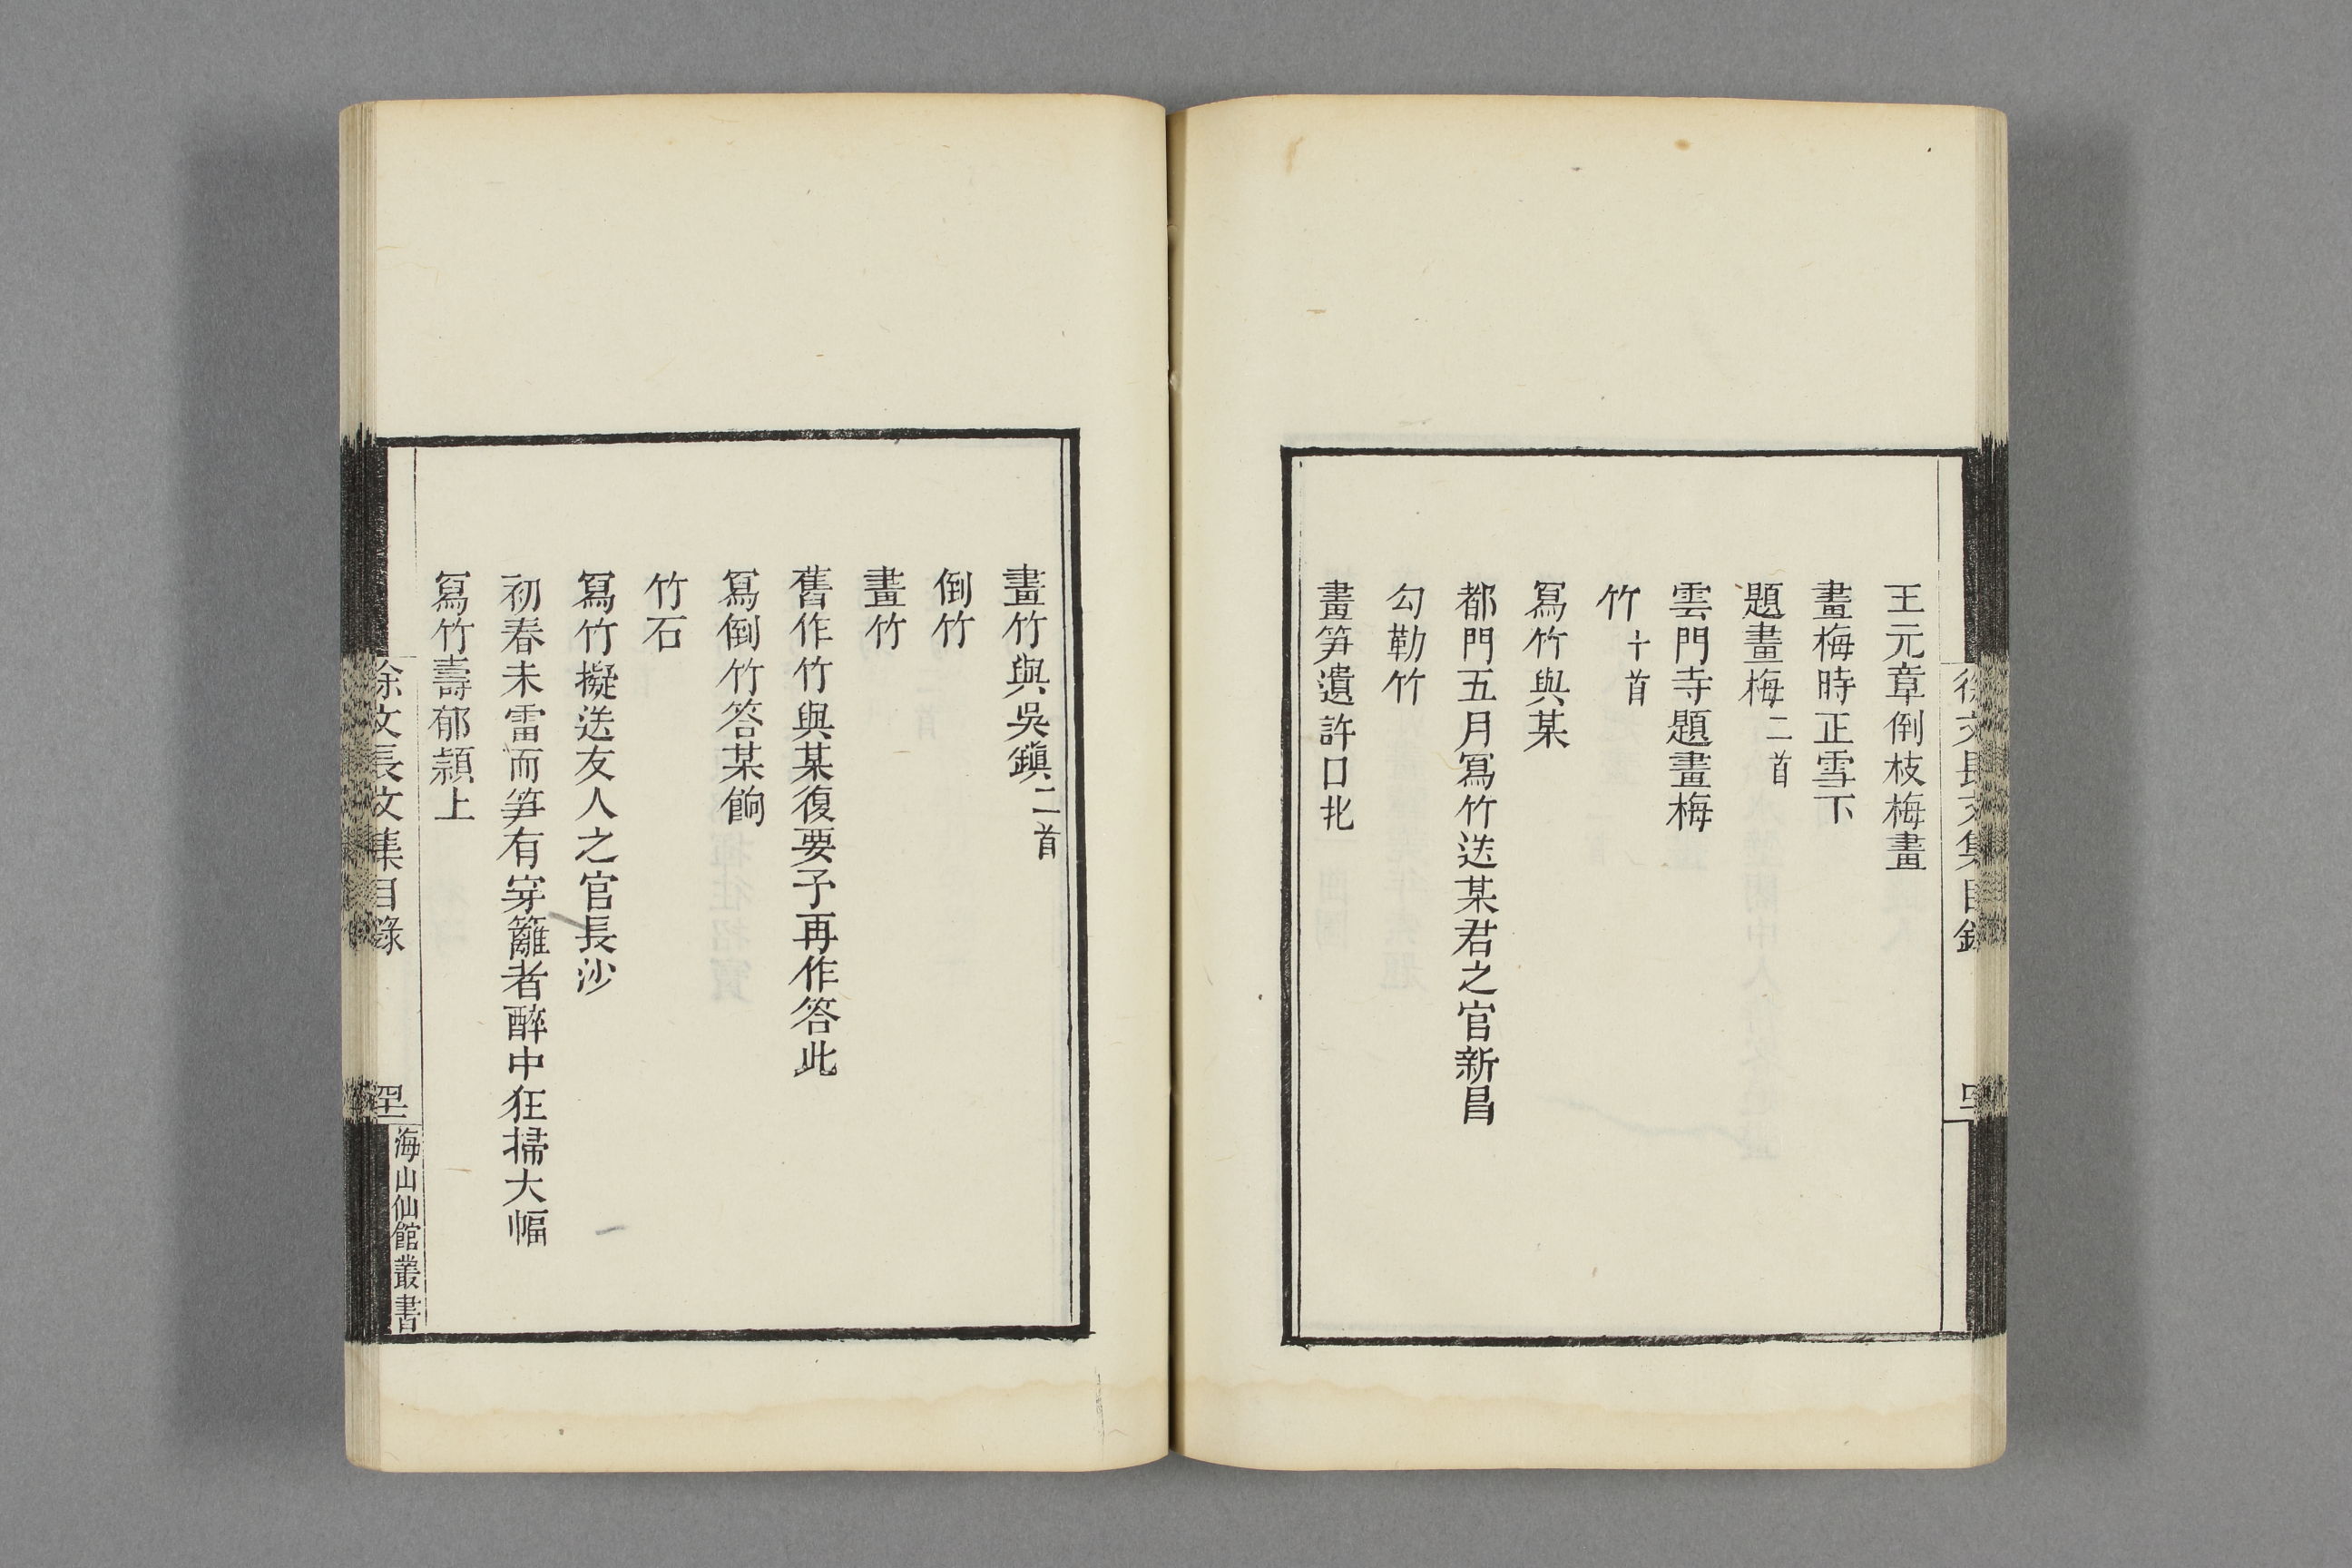 徐文長文集目錄
王元章倒枝梅畫
畫梅時正雪下
題畫梅二首
雲門寺題畫梅
竹十首
寫竹與某
都門五月寫竹送某君之官新昌
勾勒竹
畫笋遺許口北
畫竹與吳鎮二首
倒竹
畫竹
舊作竹與某復要予再作答此
寫倒竹答某餉
竹石
寫竹擬送友人之官長沙
初春未雷而笋有穿籬者醉中狂掃大幅
寫竹壽郁潁上
徐文長文集目錄
海山仙館叢書